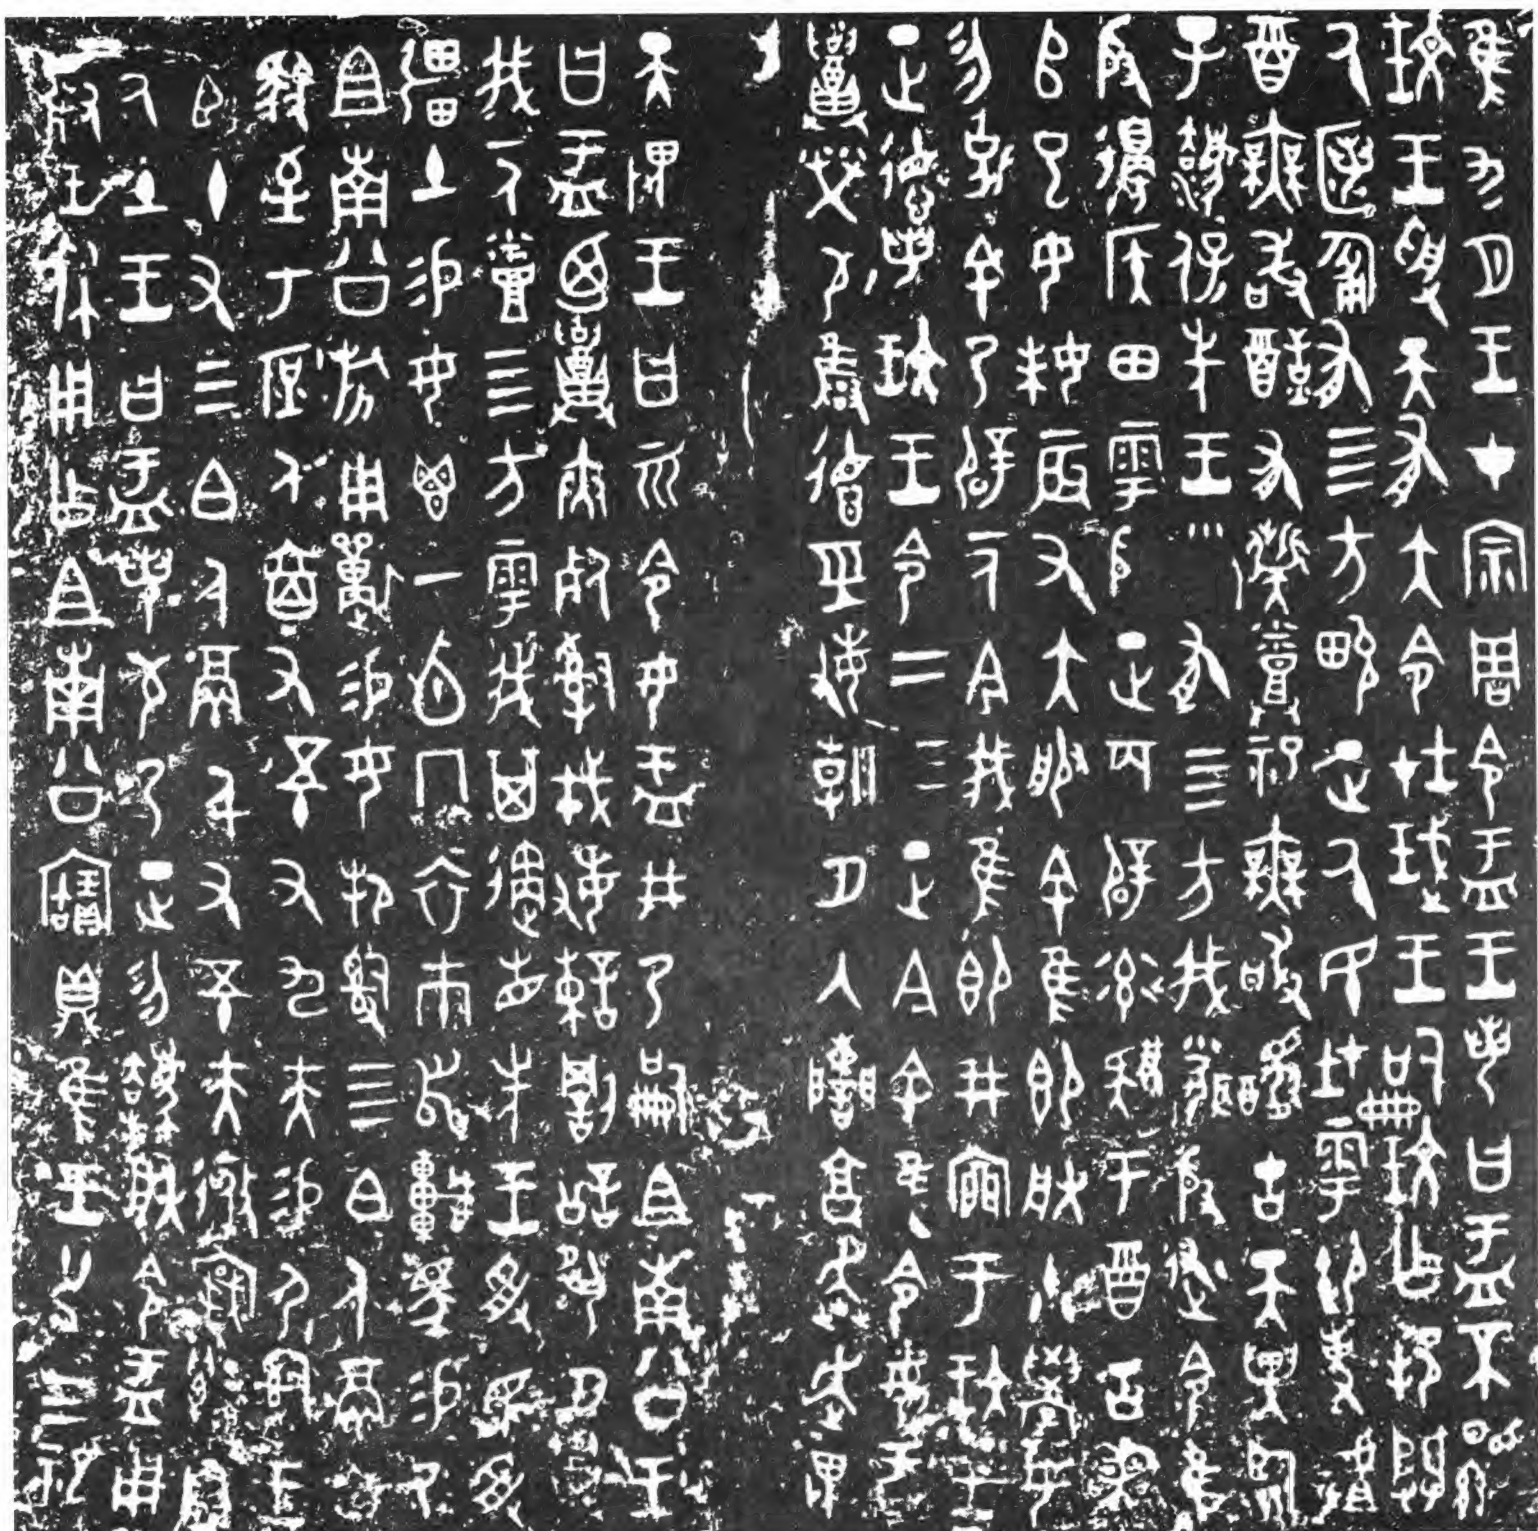 隹九月王才宗周令盂王若曰盂不顯
玟王受天有大令在珷王嗣玟乍邦闢
厥匿匍有四方畯正厥民在雩御事䖒
酉無敢酖有祡烝祀無敢醻古天異臨
子灋保先王□有四方我聞殷述令隹
殷邊侯田雩殷正百辟率肄于酉古喪
𠂤巳女妹辰又大服余隹即朕小學女
勿克余乃辟一人今我隹即井㐭于玟王
正德若玟王令二三正今余隹令女盂
召榮敬雍德經敏朝夕入讕享奔走畏
天畏王曰𠀠令女盂井乃嗣且南公王
曰盂乃召夾死司戎敏諫罰訟夙夕召
我一人烝四方雩我其遹省先王受民受
彊土易女鬯一卣冂衣巿舄車馬易乃
且南公旂用狩易女邦司四白人鬲自
馭至于庶人六百又五十又九夫易尸司王
臣十又三白人鬲千又五十夫遷自
厥土王曰盂若敬乃正勿灋朕令盂用
對王休用乍且南公寶鼎隹王廿又三祀